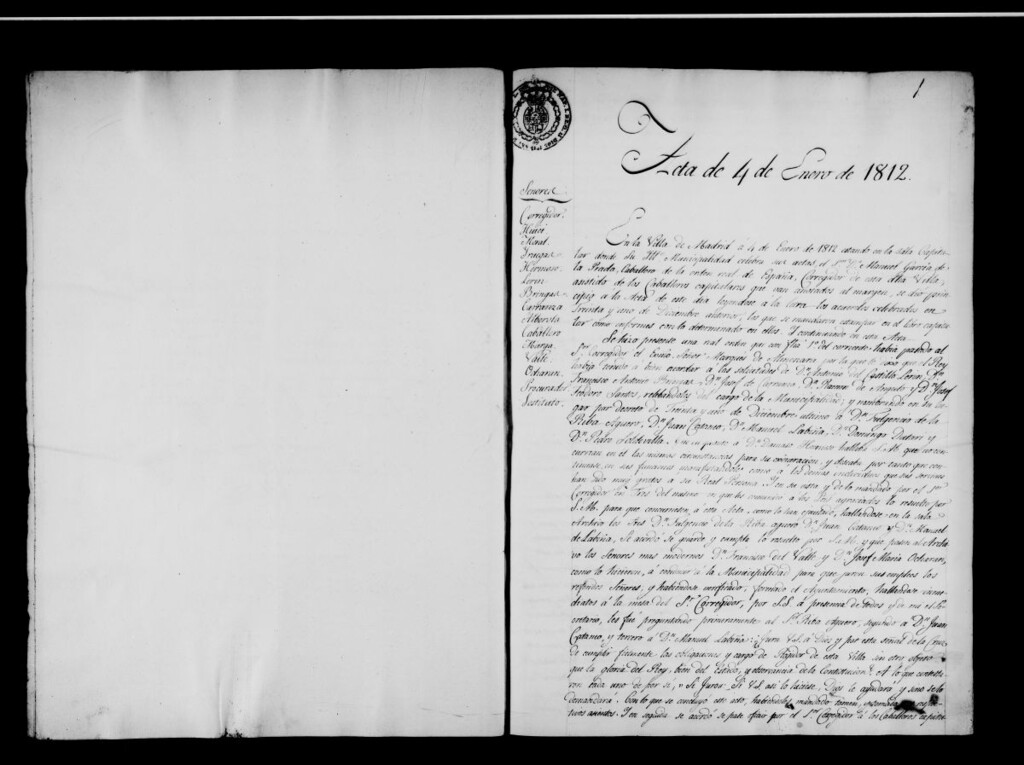 1
Acta de 4 de Enero de 1812.
Señores
Corregidor.
Moral.
Hermoso.
Loren.
Bringas.
Carranza
Caballero
Barga.
Valle.
Ocharan.
Procurador
Sostituto.
En la Villa de Madrid á 4 de Enero de 1812 estando en la sala Capitu-
lar donde su Municipalidad celebra sus actas, el Sr. Dn. Manuel Garcia de
la Prada, Caballero de la orden real de España, Corregidor de esta dha Villa,
asistido de los Caballeros capitulares que van anotados al margen, se dió prin-
cipio á la Acta de este dia leyendose á la letra los acuerdos celebrados en
Treinta y uno de Diciembre anterior, los que se mandaron estampar en el libro capitu-
lar como conformes con lo determinado en ellos. Y continuando en esta Acta.
Se hizo presente una real orden que con fha 1º del corriente habia pasado al
Sr. Corregidor el Exmo. Señor Marques de Almenara por la que el Rey
habia venido á bien acordar á las solicitudes de Dn. Antonio del Castillo Loren, Dn.
Francisco Antonio Bringas, Dn. Josef de Carranza, Dn. Ramon de Angulo y Dn. Josef
Teodoro Santos, del cargo de la Municipalidad; y nombrando en su lu-
gar por decreto de Treinta y uno de Diciembre ultimo á Dn. Fulgencio de la
Riba Aguero, Dn. Juan Cataneo, Dn. Manuel Labiña, Dn. Domingo Dutari y
Dn. Pedro Soldevilla. á Dn. Damaso Hermoso hallaba S.M. que no con-
currian en él las mismas circunstancias para su exoneracion, y deseaba por tanto que con-
tinuase en sus funciones como á los demas individuos que sus servicios
han sido muy gratos á su Real Persona. Y en su vista y de lo mandado por el Sr.
Corregidor en Tres del mismo en que ha comunicado á los Sres. agraciados lo resuelto por
S.M. para que concurriesen á esta Acta, como lo han egecutado, hallandose en la sala
Archivo los Sres. Dn. Fulgencio de la Riba aguero Dn. Juan Cataneo y Dn. Manuel
de Labiña, Se acordó se guarde y cumpla lo resuelto por S.M. y que pasen al Archi-
vo los Señores mas modernos Dn. Francisco del Valle y Dn. Josef Maria Ocharan,
como lo hicieron, á conducir á la Municipalidad para que juren sus empleos los
referidos Señores, y habiendose verificado, formado el Ayuntamiento, hallandose inme-
diatos á la mesa del Sr. Corregidor, por S.S. á presencia de todos y de mi el Se-
cretario, les fue preguntado primeramente al Sr. Riba Aguero, segundo á Dn. Juan
Cataneo, y tercero á Dn. Manuel Labiña: ¿Juran V.S. á Dios y por esta señal de la Cruz
de cumplir fielmente las obligaciones y cargo de Regidor de esta Villa sin otro objeto
que la gloria del Rey, bien del Estado, y observancia de la Constitucion? A lo que contesta-
ron cada uno de por sí, Si Juro: Si V.S. asi lo hiciese, Dios le ayudará y sino se lo
demandará. Con lo que se concluyó este acto, habiendoles mandado tomar
asientos. Y en seguida se acordó se pase oficio por el Sr. Corregidor á los Caballeros